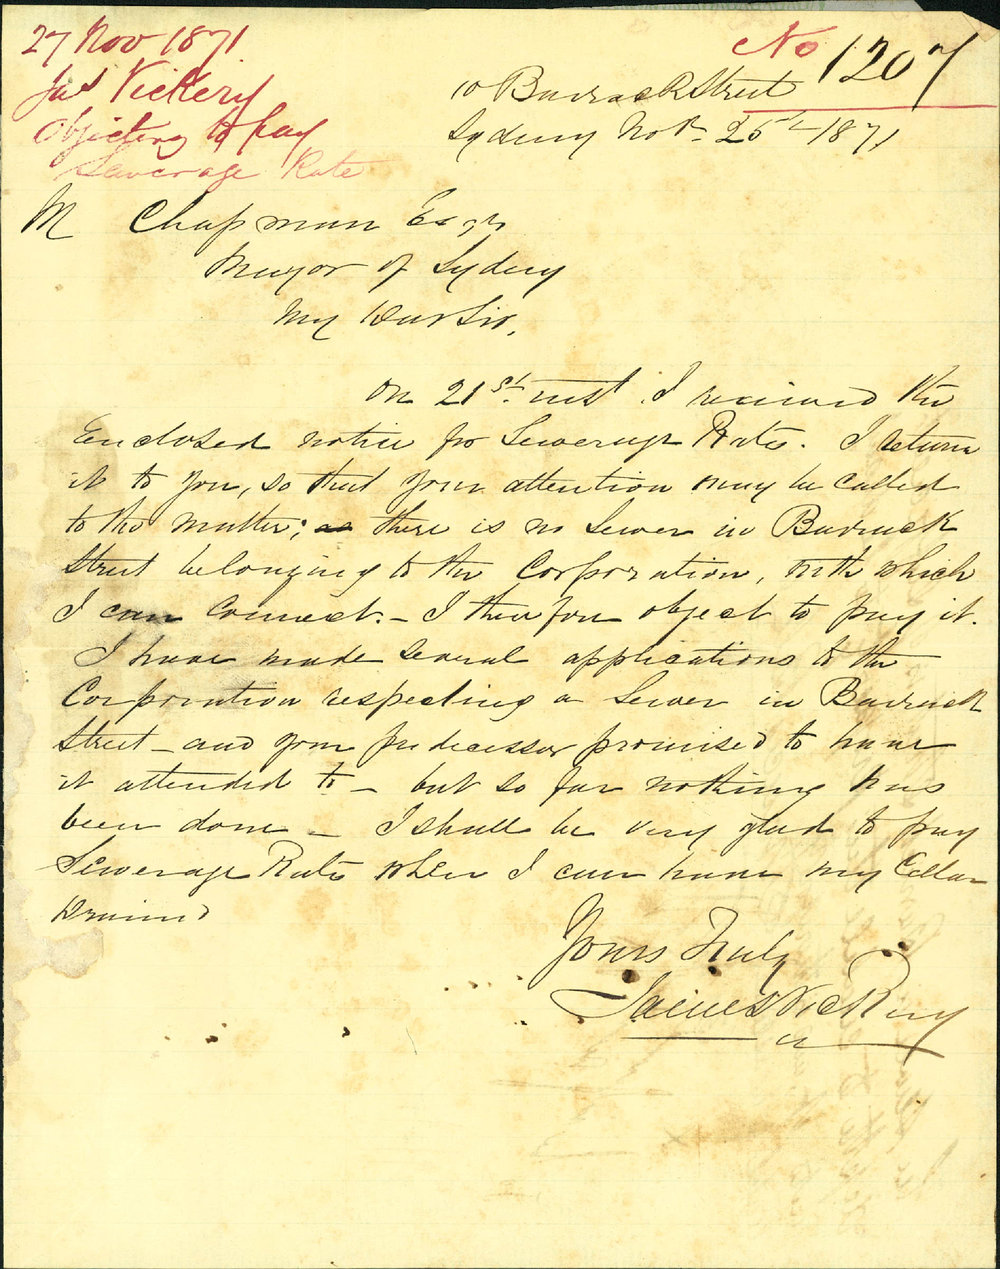 27 Nov 1871
Jas Vickery
Objecting to pay
Sewerage Rate
No 1207
10 Barrack Street
Sydney Novr 25th 1871
M Chapman Esqr
Mayor of Sydney
My Dear Sir,
On 21st inst I received the
Enclosed notice for Sewerage Rates. I return
it to you, so that your attention may be called
to the matter; as there is no Sewer in Barrack
Street belonging to the Corporation, with which
I can Connect. - I therefore object to pay it.
I have made several applications to the
Corporation respecting a Sewer in Barrack
Street - and your predecessor promised to have
it attended to - but so far nothing has
been done - I shall be very glad to pay
Sewerage Rates when I can have my Cellar
drained
Yours Truly
James Vickery